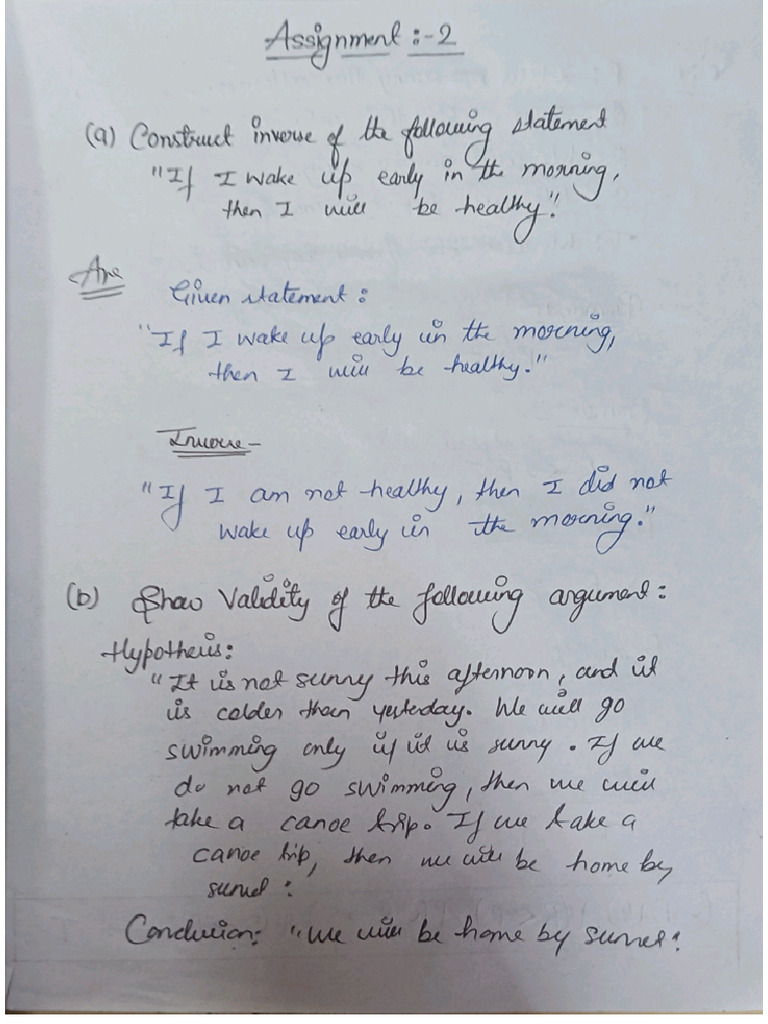 Assignment :- 2
(a) Construct inverse of the following statement
"If I wake up early in the morning,
then I will be healthy."
Ans
Given statement :
"If I wake up early in the morning,
then I will be healthy."
Inverse -
"If I am not healthy, then I did not
wake up early in the morning."
(b) Show Validity of the following argument :
Hypothesis:
"It is not sunny this afternoon, and it
is colder than yesterday. We will go
swimming only if it is sunny. If we
do not go swimming, then we will
take a canoe trip. If we take a
canoe trip, then we will be home by
sunset :
Conclusion: "We will be home by sunset.